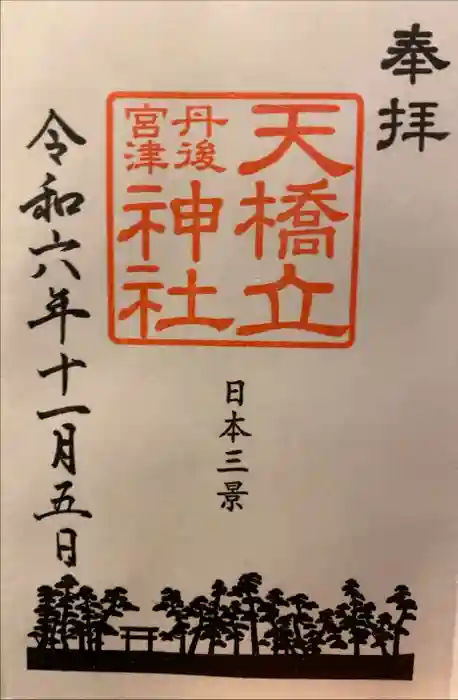 奉拝
天橋立
丹後
宮津
神社
日本三景
令和六年十一月五日